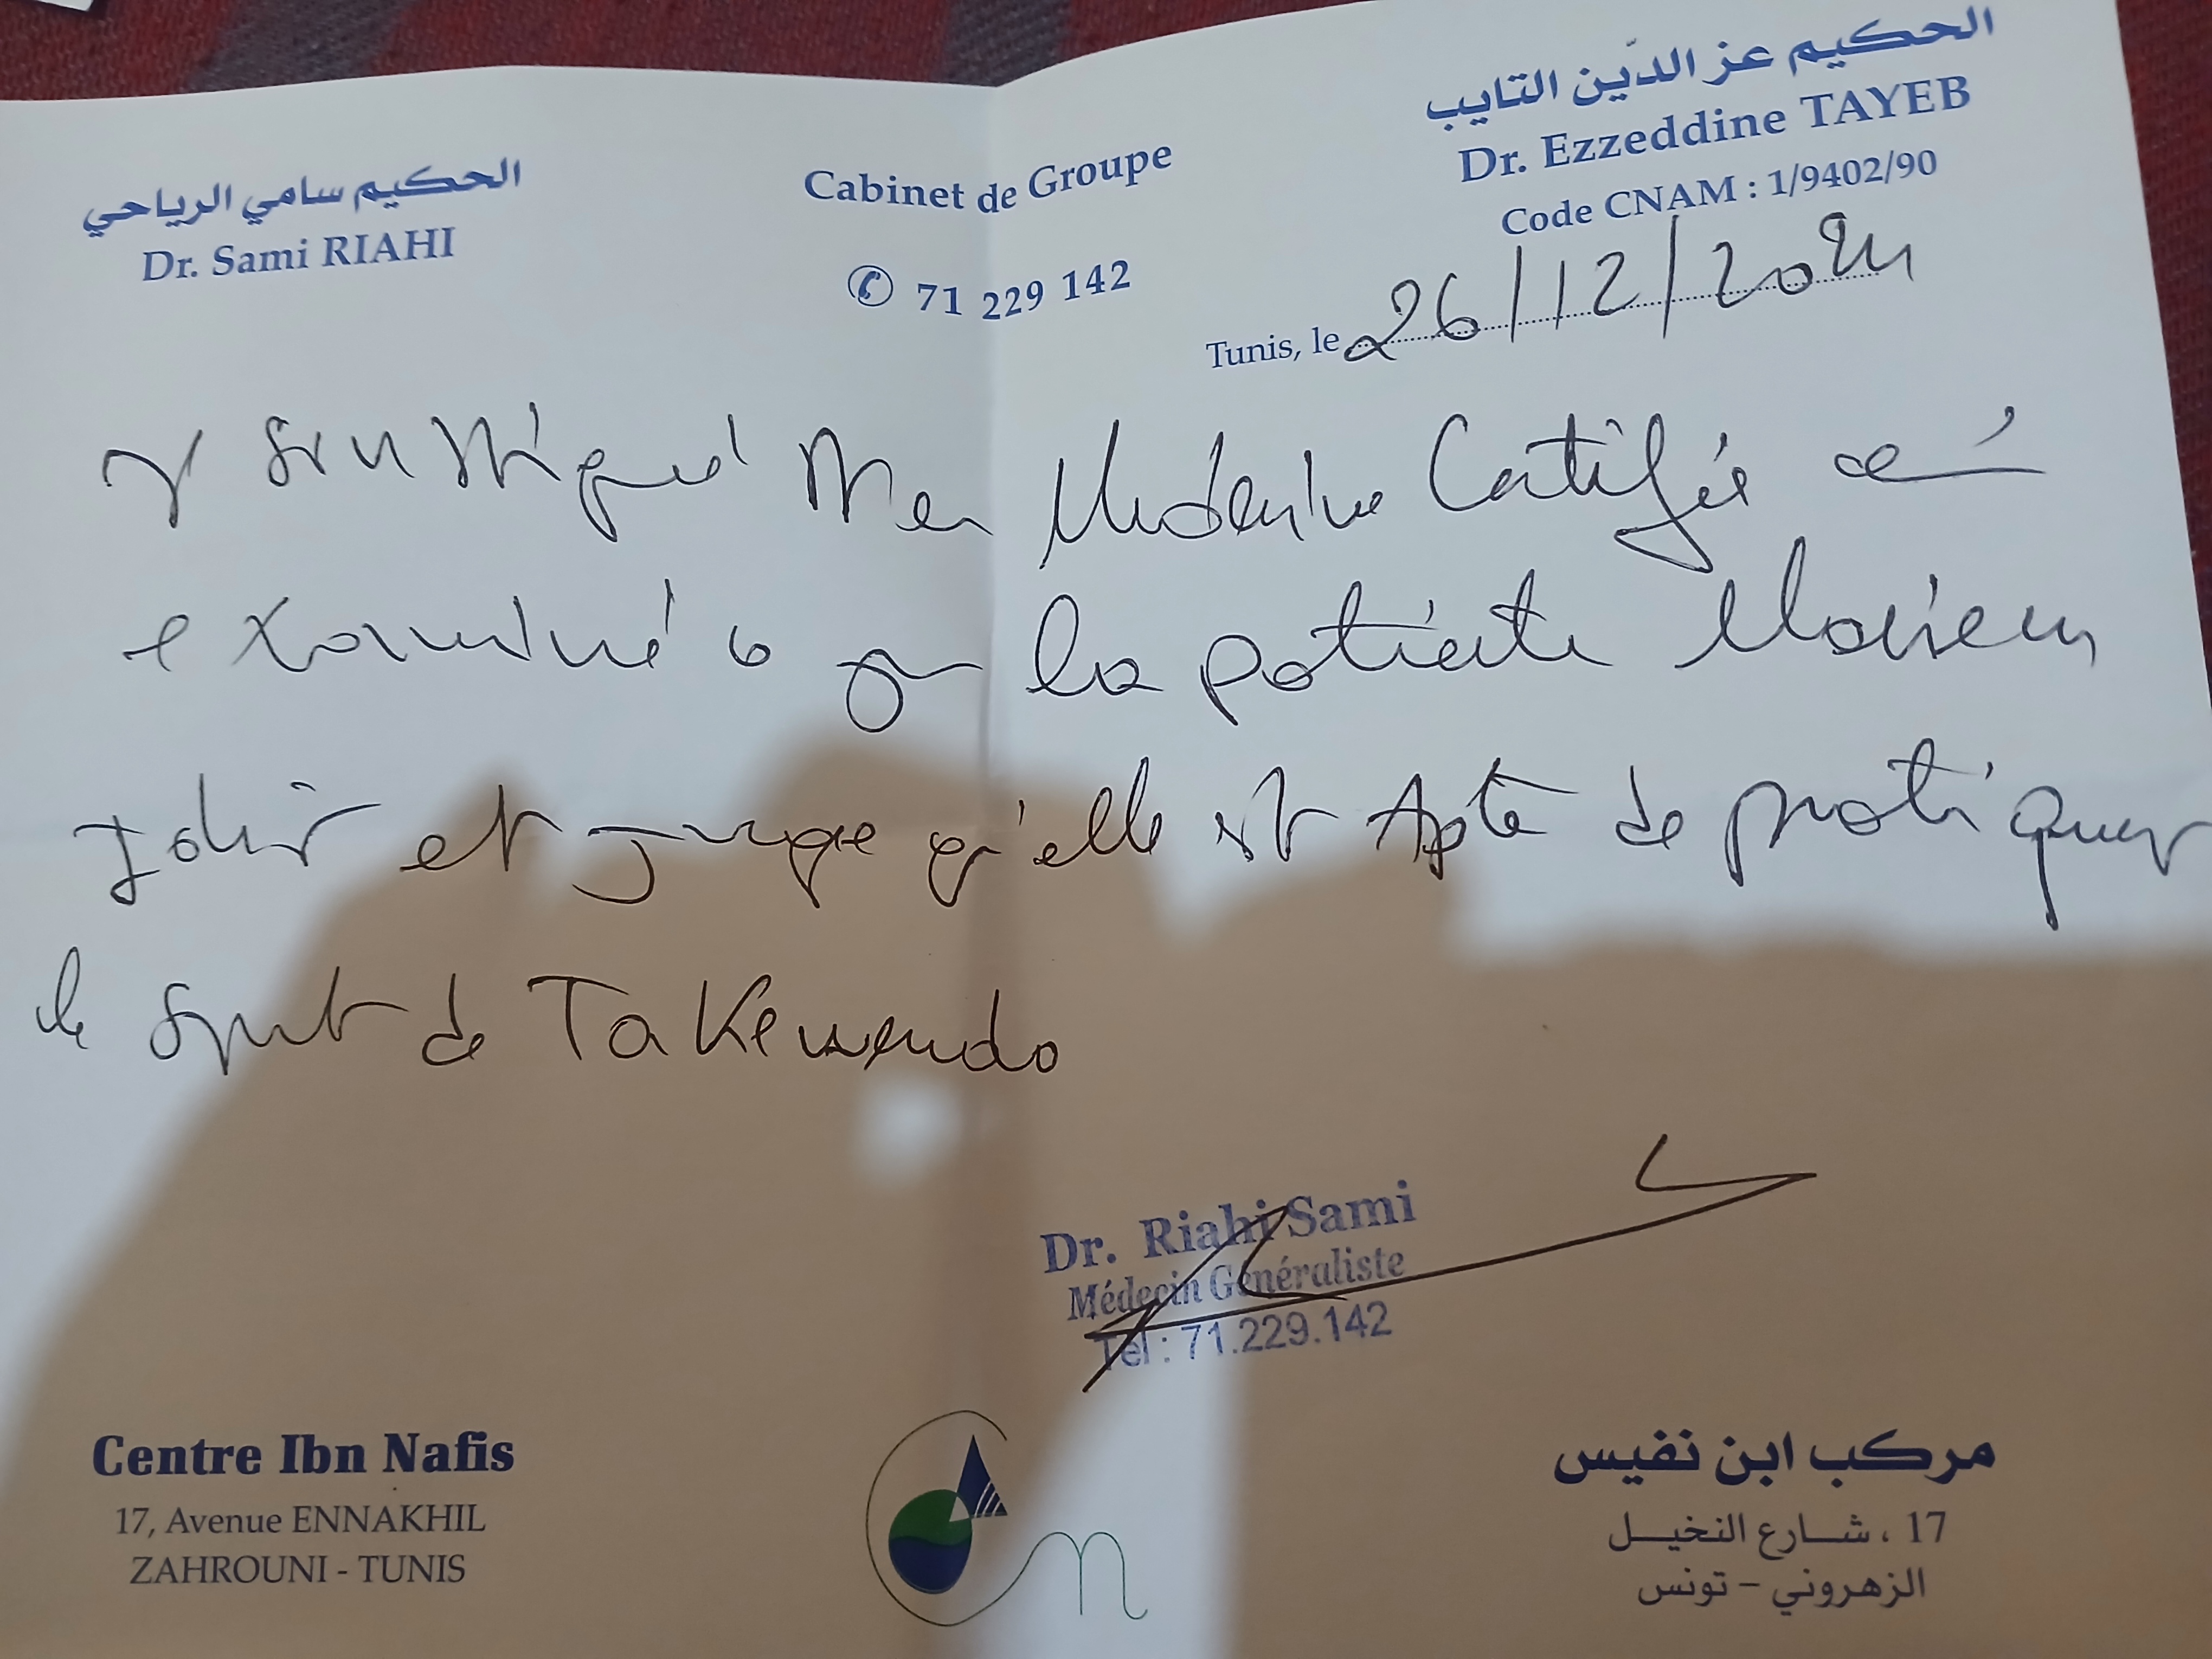 الحكيم سامي الرياحي
Dr. Sami RIAHI
Cabinet de Groupe
✆ 71 229 142
الحكيم عز الدّين التايب
Dr. Ezzeddine TAYEB
Code CNAM : 1/9402/90
Tunis, le 26/12/2024
Médecine Certifie
examiné la patiente Mariem
et juge qu'elle est Apte de pratiquer
le sport de Takewendo
Dr. Riahi Sami
Médecin Généraliste
Tél : 71.229.142
Centre Ibn Nafis
17, Avenue ENNAKHIL
ZAHROUNI - TUNIS
مركب ابن نفيس
17 ، شارع النخيل
الزهروني - تونس